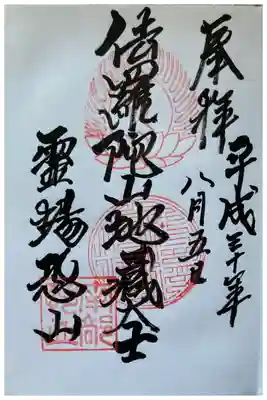 奉拝
平成三十年
八月五日
佉羅陀山地蔵大士
靈場恐山